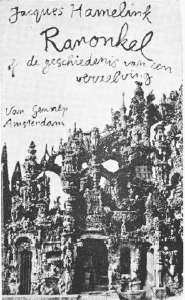 Jacques Hamelink
Ranonkel
of de geschiedenis van een
verzelving
Van Gennep
Amsterdam